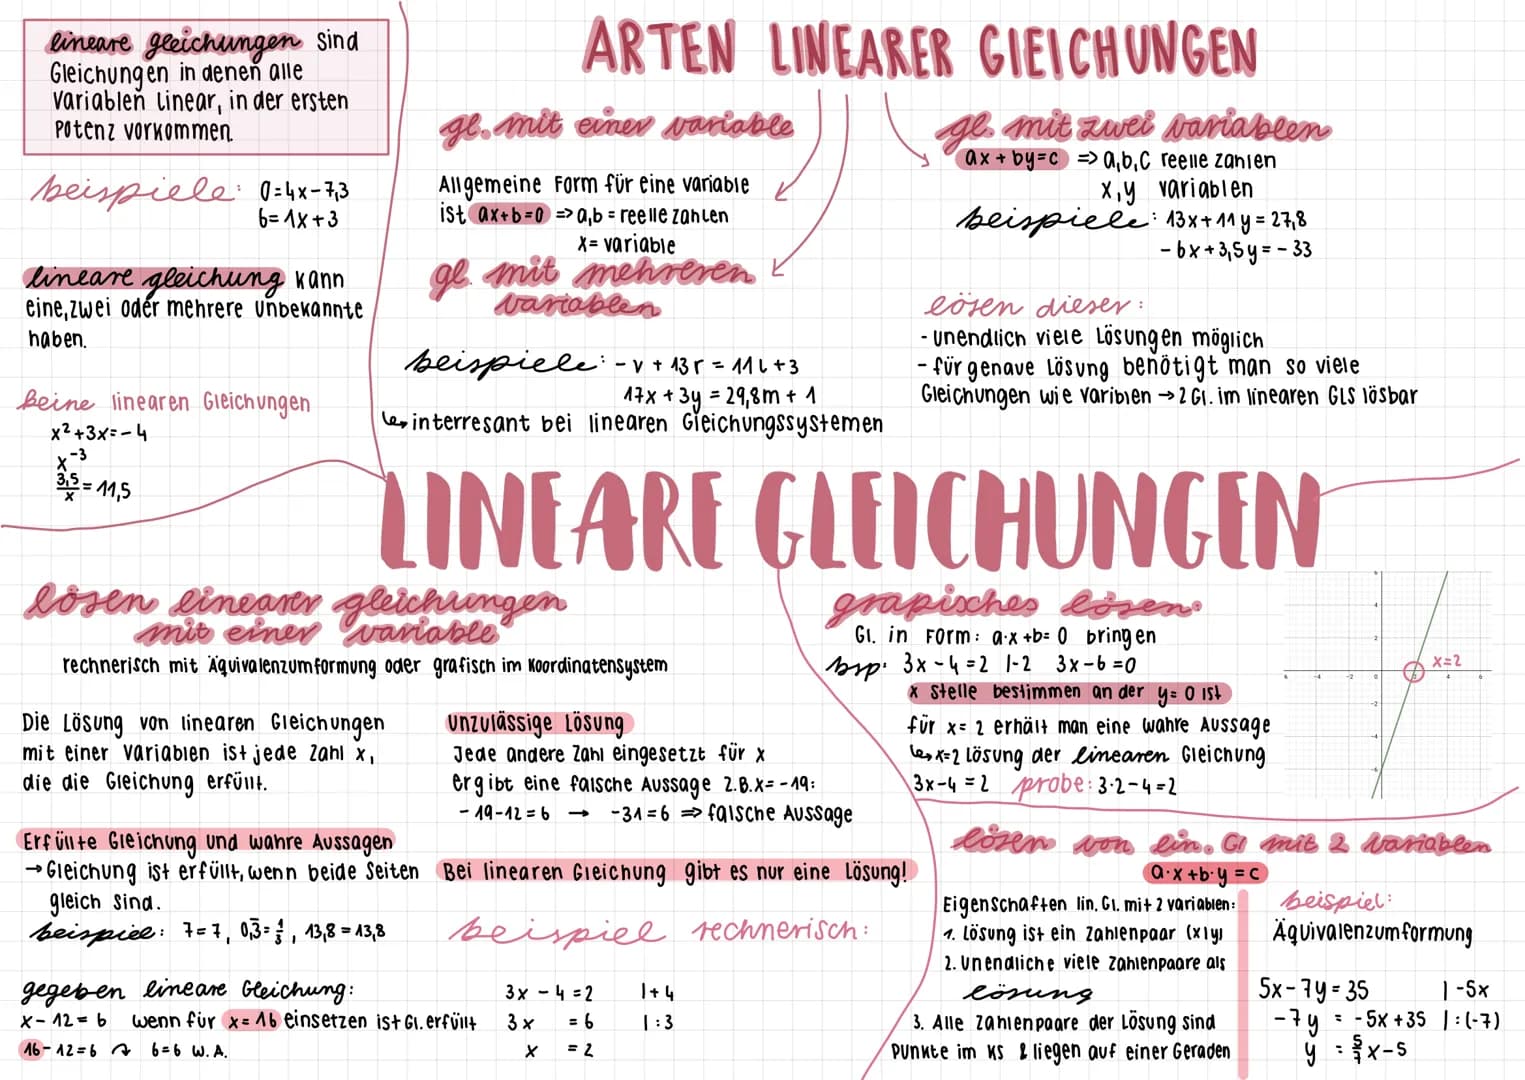 lineare gleichungen sind
Gleichungen in denen alle
Variablen linear, in der ersten
Potenz vorkommen.
beispiele: 0=4x-7,3
6=1x+3
lineare gleichung kann
eine, zwei oder mehrere Unbekannte
haben.
keine linearen Gleichungen
x²+3x=-4
x⁻³
3,5/x = 11,5
ARTEN LINEARER GLEICHUNGEN
gl. mit einer variable
Allgemeine Form für eine variable
ist ax+b=0 => a,b = reelle zahlen
x= variable
gl. mit mehreren
variablen
beispiele: -v + 13r = 11l+3
17x + 3y = 29,8m + 1
↳ interresant bei linearen Gleichungssystemen
gl. mit zwei variablen
ax + by=c => a,b,c reelle zahlen
x,y variablen
beispiele: 13x+11y = 27,8
-6x+3,5y = -33
lösen dieser:
- unendlich viele Lösungen möglich
- für genaue Lösung benötigt man so viele
Gleichungen wie Variblen → 2 Gl. im linearen GLS lösbar
LINEARE GLEICHUNGEN
lösen linearer gleichungen
mit einer variable
rechnerisch mit Äquivalenzumformung oder grafisch im Koordinatensystem
Die Lösung von linearen Gleichungen
mit einer Variablen ist jede Zahl x,
die die Gleichung erfüllt.
Erfüllte Gleichung und wahre Aussagen
→ Gleichung ist erfüllt, wenn beide Seiten
gleich sind.
beispiel: 7=7, 0,3̅=1/3, 13,8=13,8
gegeben lineare Gleichung:
x-12=6 wenn für x=16 einsetzen ist Gl. erfüllt
16-12=6 ↷ 6=6 W.A.
unzulässige Lösung
Jede andere Zahl eingesetzt für x
ergibt eine falsche Aussage z.B. x=-19:
-19-12=6 → -31=6 => falsche Aussage
Bei linearen Gleichung gibt es nur eine Lösung!
beispiel rechnerisch:
3x - 4 = 2 |+4
3x = 6 |:3
x = 2
grapisches lösen:
Gl. in Form: a·x+b=0 bringen
bsp: 3x-4=2 |-2 3x-6=0
x Stelle bestimmen an der y=0 ist
für x=2 erhält man eine wahre Aussage
↳ x=2 Lösung der linearen Gleichung
3x-4=2 probe: 3·2-4=2
x=2
lösen von lin. Gl mit 2 variablen
a·x+b·y=c
Eigenschaften lin. Gl. mit 2 variablen:
1. Lösung ist ein Zahlenpaar (x|y)
2. Unendliche viele Zahlenpaare als
lösung
3. Alle Zahlenpaare der Lösung sind
Punkte im KS & liegen auf einer Geraden
beispiel:
Äquivalenzumformung
5x-7y=35 |-5x
-7y = -5x+35 |:(-7)
y = 5/7 x-5